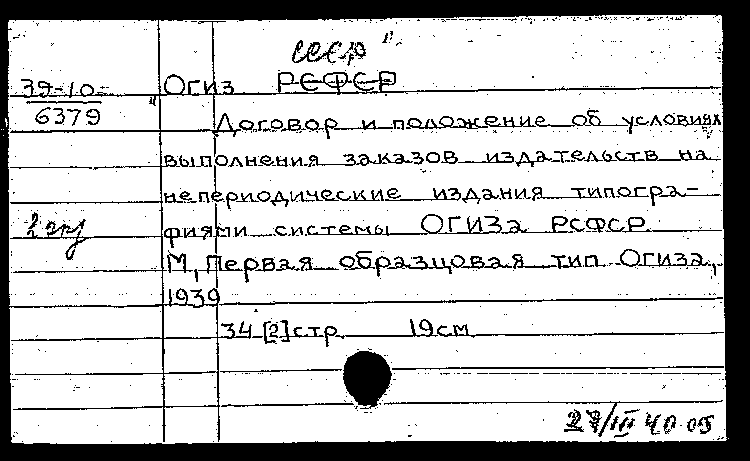 СССР"
39-10-
6379
"Огиз РСФСР
Договор и положение об условиях
выполнения заказов издательств на
непериодические издания типогра-
2 экз
фиями системы ОГИЗа РСФСР
М, Первая образцовая тип Огиза,
1939
34 [2] стр 19см
27/III 40 05